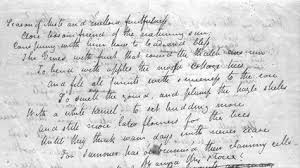 Season of Mists and mellow fruitfulness
Close bosom friend of the maturing sun
Conspiring with him how to load and bless
The Vines with fruit that round the thatch eves run
To bend with apples the moss'd Cottage trees
And fill all fruits with sweeness to the core
To swell the gourd, and plump the hazle shells
With a white kernel; to set budding more
And still more later flowers for the bees
Until they think warm days will never cease
For Summer has their clammy cells